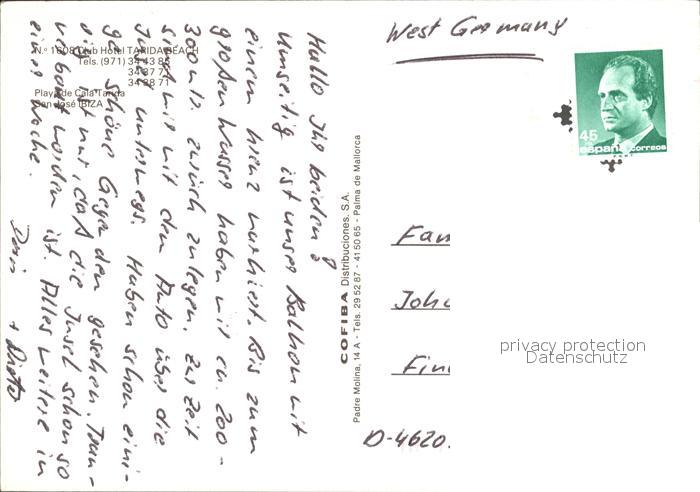 West Germany
45
españa correos
N.º 1608 Club Hotel TARIDA BEACH
Tels. (971) 34 43 85
34 37 71
34 38 71
Playa de Cala Tarida
San José IBIZA
Hallo Ihr beiden!
Umseitig ist unser Balkon mit
einem Kreuz markiert. Bis zum
großen Wasser haben wir ca. 200-
300 m zurück zulegen. Zur Zeit
sind wir mit dem Auto über die
Insel unterwegs. Haben schon eini-
ge schöne Gegenden gesehen. Trau-
rig ist nur, daß die Insel schon so
verbaut worden ist. Alles weitere in
einer Woche.
+ Dieter
COFIBA Distribuciones, S.A.
Padre Molina, 14 A - Tels. 29 52 87 - 41 50 65 - Palma de Mallorca
Fam
Joh
Fin
D-4620.
privacy protection
Datenschutz